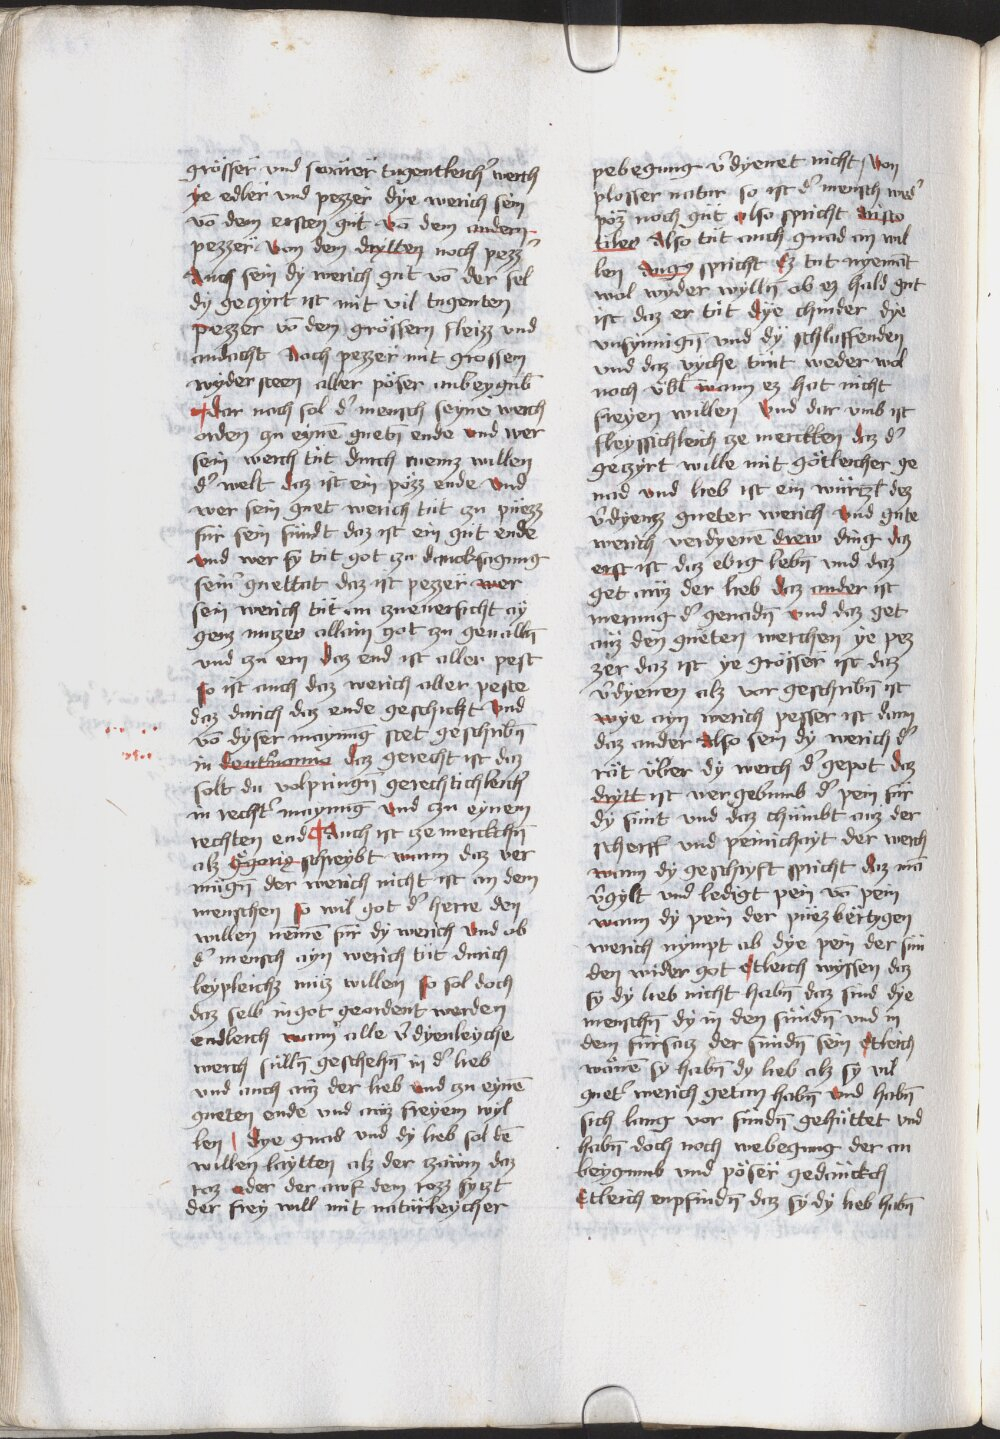 grösser und swärer tugentleich' werch
ye edler vnd pezzer dye werich sein
vō dem ersten gut vō dem andern
pezzer von dem drytten noch pezz'
Auch sein dy werich gut vō der sel
dy geczyrt ist mit vil tugenten
pezzer vō den grössern fleizz vnd
andacht Noch pezzer mit grossem
wyder steen aller pöser anbeygūb
Dar nach sol d' mensch seyne werch
orden zu eynē guetn̄ ende vnd wer
sein werch tüt durch rüemz willen
d' welt daz ist ein pözz ende vnd
wer sein guet werich tüt zu püezz
für sein sündt daz ist ein güt ende
vnd wer sy tüt got zu dancksagung
sein' guettat daz ist pezzer wer
sein werich tüt an zueuersicht ay
gens nuczes allain got zu geualln̄
vnd zu ern daz end ist aller pest
so ist auch daz werich aller peste
daz durich daz ende geschicht vnd
vō dyser maynung stet geschribn̄
in deutrōmio daz gerecht ist daz
solt du volpringn̄ gerechtichleich'
in recht' maynung vnd zu eynem
rechten end Auch ist cze merckhn̄
alz Ggorig schreybt wann daz ver
mügn̄ der werich nicht ist an dem
menschen so wil got d' herre den
willen nēmē für dy werich vnd ob
d' mensch ayn werich tüt durich
leypleichz nüz willen so sol doch
daz selb in got geordent werden
endleich wann alle v'dyenleyche
werch sülln̄ geschehn̄ in d' lieb
vnd auch auz der lieb vnd zu eynē
gueten ende vnd auz freyem wyl
len dye gnad vnd dy lieb sol dē
willen laytten alz der czawm daz
roz oder der auf dem rozz sytzt
der frey will mit natürleycher
pebegung v'dyenet nicht von
plosser natur so ist d' mensch wed'
pöz noch güt also spricht Aristo
tiles Also tüt auch gnad an wil
len Augꝰ spricht Ez tut nyemāt
wol wyder wylln̄ ob ez hald gut
ist daz er tüt dye chinder dye
vnsynnign̄ vnd dy schlaffenden
vnd daz vyche tünt weder wol
noch übl wann ez hat nicht
freyen willen vnd dar vmb ist
fleyssichleich cze merckken daz d'
geczyrt wille mit götleicher ge
nad vnd lieb ist ein würczl dez
v'dyenz gueter werich vnd gute
werich verdyenē drew ding daz
erst ist daz ebig lebn̄ vnd daz
get auz der lieb daz ander ist
merung d' genadn̄ vnd daz get
auz den guēten werchen ye pez
zer daz ist ye grösser ist daz
v'dyenen alz vor geschribn̄ ist
wye ayn werich pesser ist dann
daz ander Also sein dy werich d'
rät über dy werch d' gepot daz
drytt ist vergebumb d' pein für
dy sünt vnd daz chümbt auz der
scherff vnd peinichayt der werch
wann dy geschryft spricht daz mā
v'gylt vnd ledigt pein vō pein
wann dy pein der püezbērtygen
werich nympt ab dye pein der sün
den wider got Etleich wyssen daz
sy dy lieb nicht habn̄ daz sind dye
menschn̄ dy in den sündn̄ vnd in
dem fürsacz der sündn̄ sein Etleich
wänē sy habn̄ dy lieb alz sy vil
guet' werich getan habn̄ vnd habn̄
sich lang vor sündn̄ gehüttet vnd
habn̄ doch noch webegung der an
beygunb vnd pöser gedänckch
Etleich enpfindn̄ daz sy dy lieb habn̄